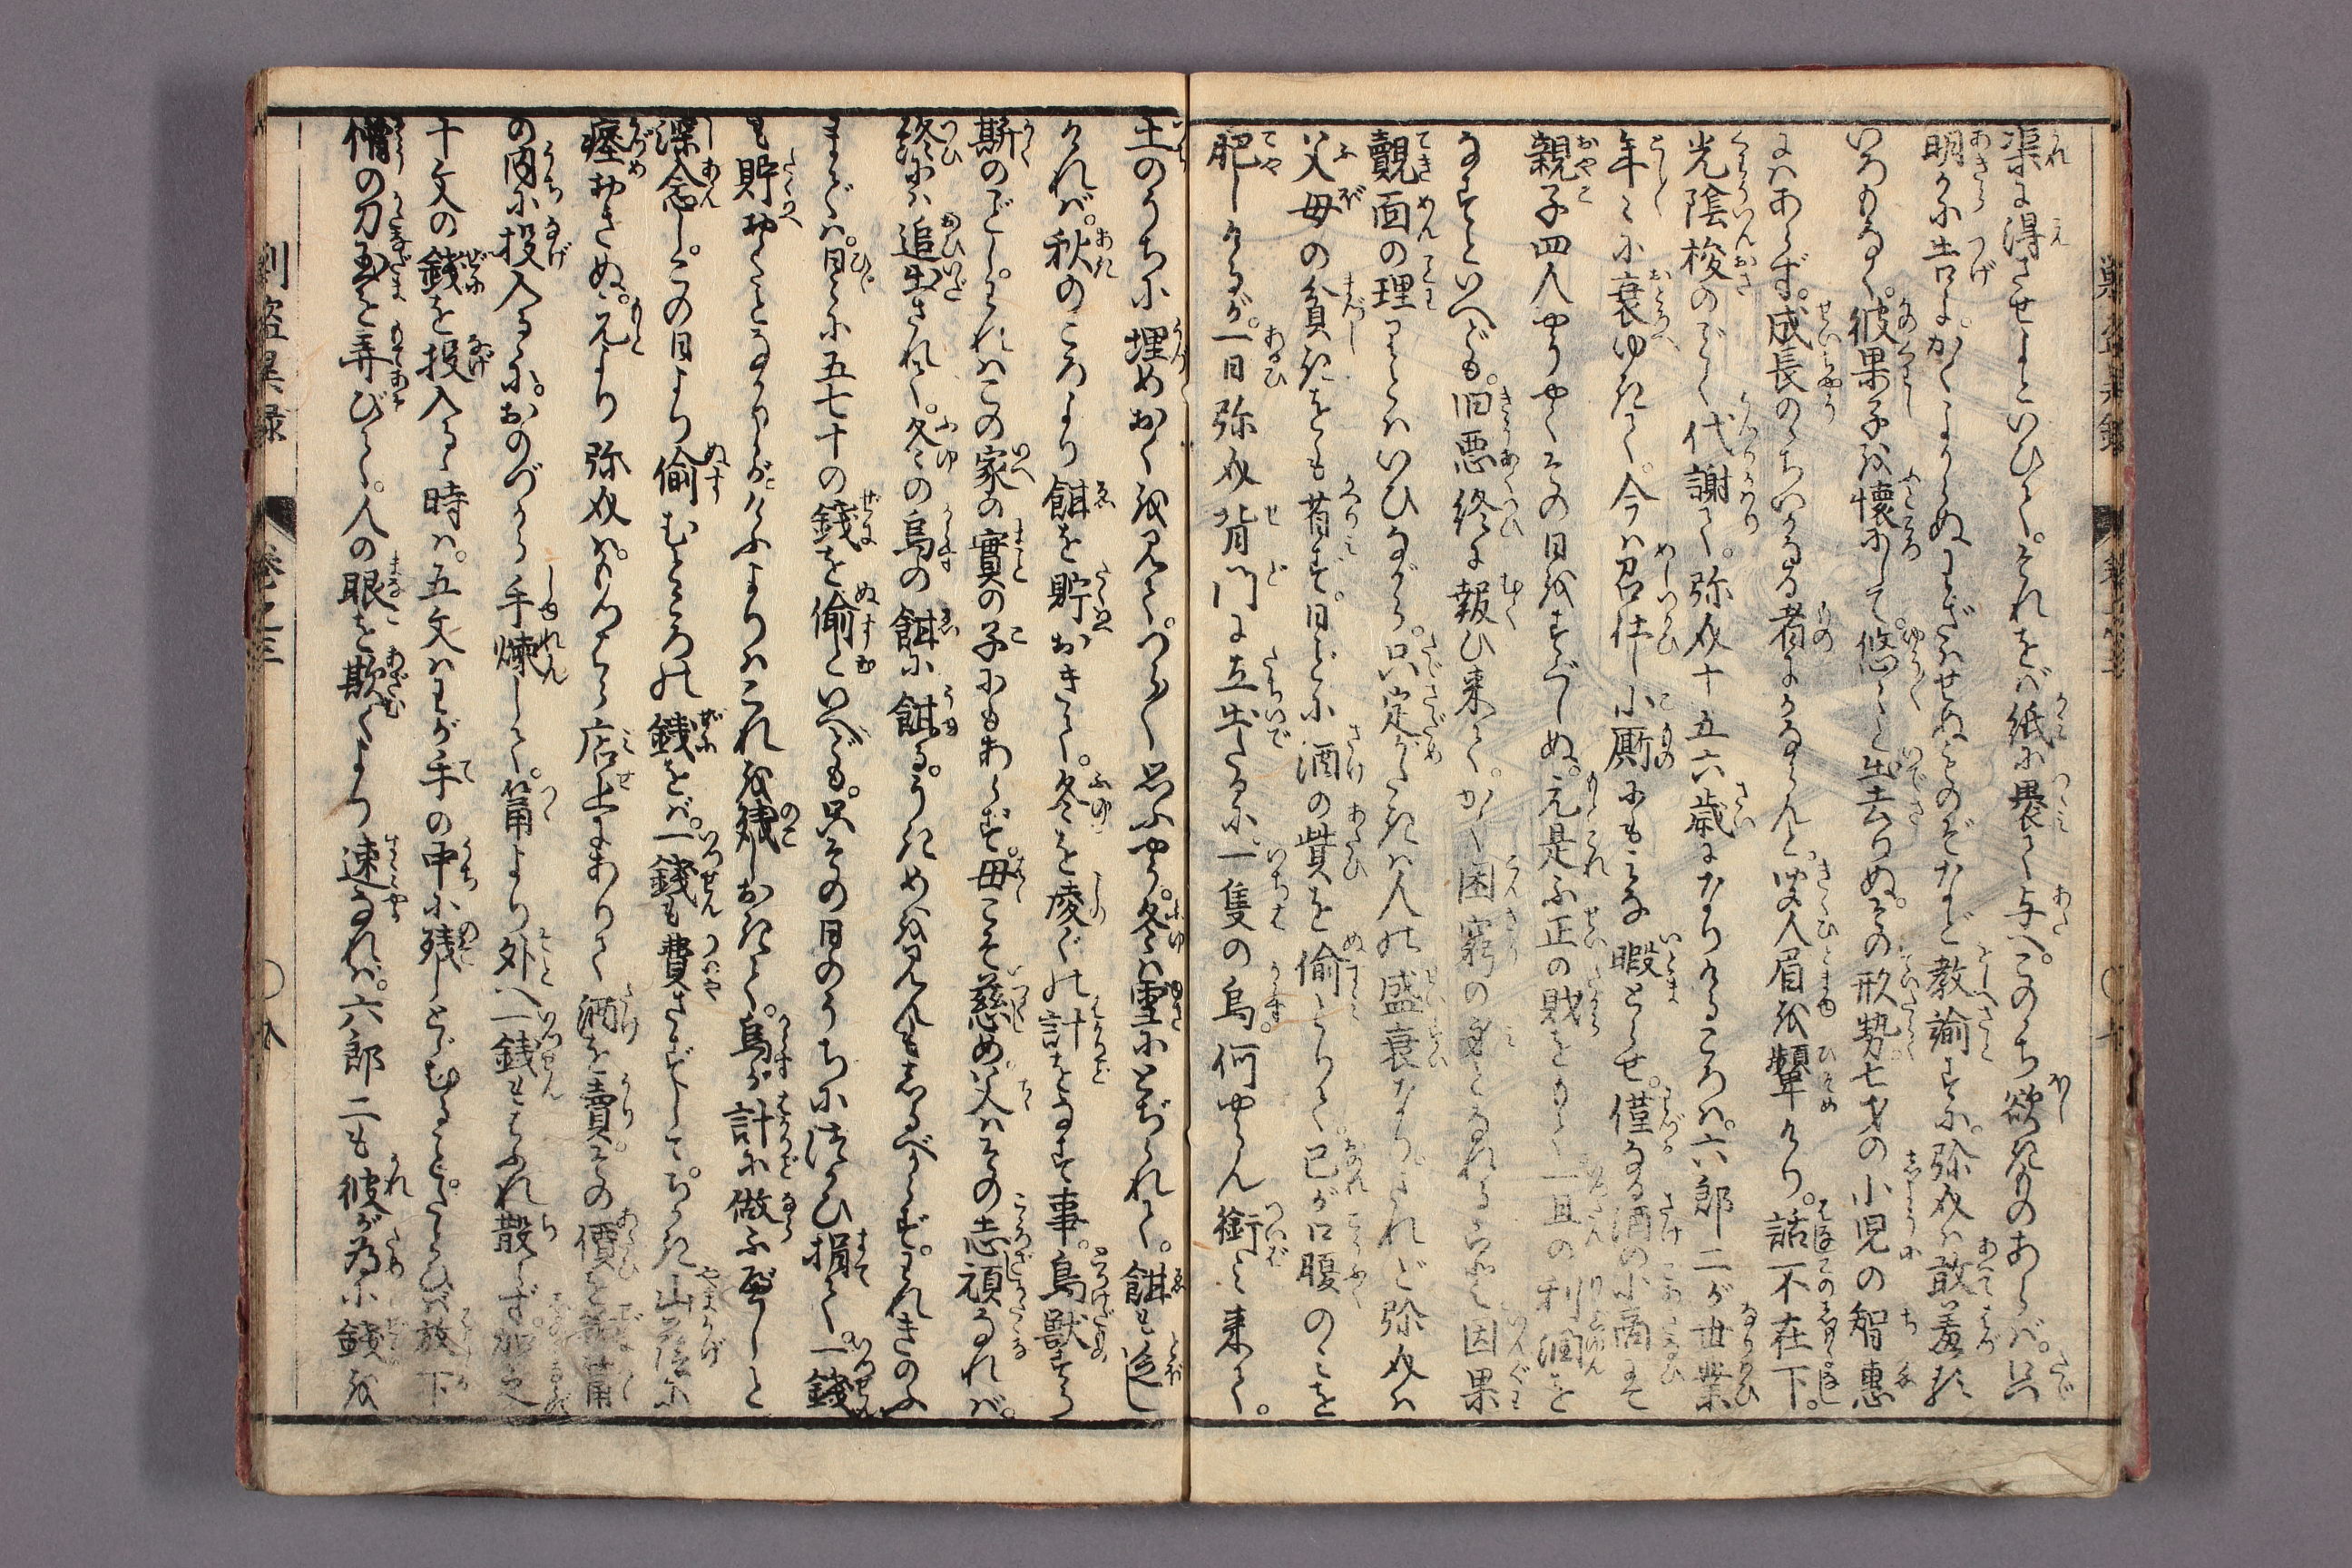 渠に得させよといひて。それをば紙に裹て与へ。このゝち欲きものあらば。只
明々に告よ。かくよからぬわざはせぬものぞなど教諭すに。弥太は敢羞る
いろもなく。彼果子を懐にして。悠々と出去りぬ。その形勢七才の小児の智恵
にはあらず。成長のゝちいかなる者にかならんと。聞人眉を顰けり。話不在下。
光陰梭のごとく代謝て。弥太十五六歳になりけるころは。六郎二が世業
年々に衰ゆきて。今は召仕し小厮にもみな暇とらせ。僅なる酒の小商して
親子四人やうやくその日をすぐしぬ。元是不正の財をもて一旦の利潤を
なすといへども。旧悪終に報ひ来て。かく困窮の身となれるら
因果
覿面の理
とはいひながら。只定がたきは人の盛衰なり。されど弥太は
父母の貧きをも省ず。日ごとに酒の貲を偷とりて。己が口腹のみを
肥しけるが。一日弥太背門に立出たるに。一隻の烏。何やらん銜て来て。
土のうちに埋めおくを見て。つらつら思ふやう。冬は雪にとぢられて。餌も乏し
ければ。秋のころより餌を貯おきて。冬を凌ぐの計をなす事。鳥獣すら
斯のごとし。われはこの家の實の子にもあらず。母こそ慈め。父はその志頑なれば。
終には追出されて。冬の烏の餌に餓る。うきめを見んもしるべからず。われきのふ
までは。日々に五七十の銭を偷といへども。只その日のうちに
つかひ捐て。一銭
も貯おくことなかりしが。けふよりはこれを残しおきて。烏が計に做ふべしと
深念し。この日より偷むところの銭をば。一銭も費さずして。ちかき山蔭に
瘞おきぬ。元より弥太は。
店上にありて酒を賣。その價を
の内に投入るゝに。おのづから手煉して。筩より外へ一銭も
ふれ散らず。加之
十文の銭を投入るゝ時は。五文はわが手の中に残しとゞむること。たとへば放下
僧の刀玉を弄びて。人の眼を欺くより速なれば。六郎二も彼が為に銭を
刪盗異録
巻之三
○九